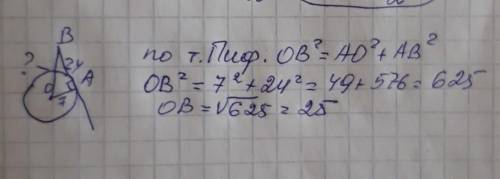 B
?
24
A
O
7
по т. Пиф. OB² = AO² + AB²
OB² = 7² + 24² = 49 + 576 = 625
OB = √625 = 25